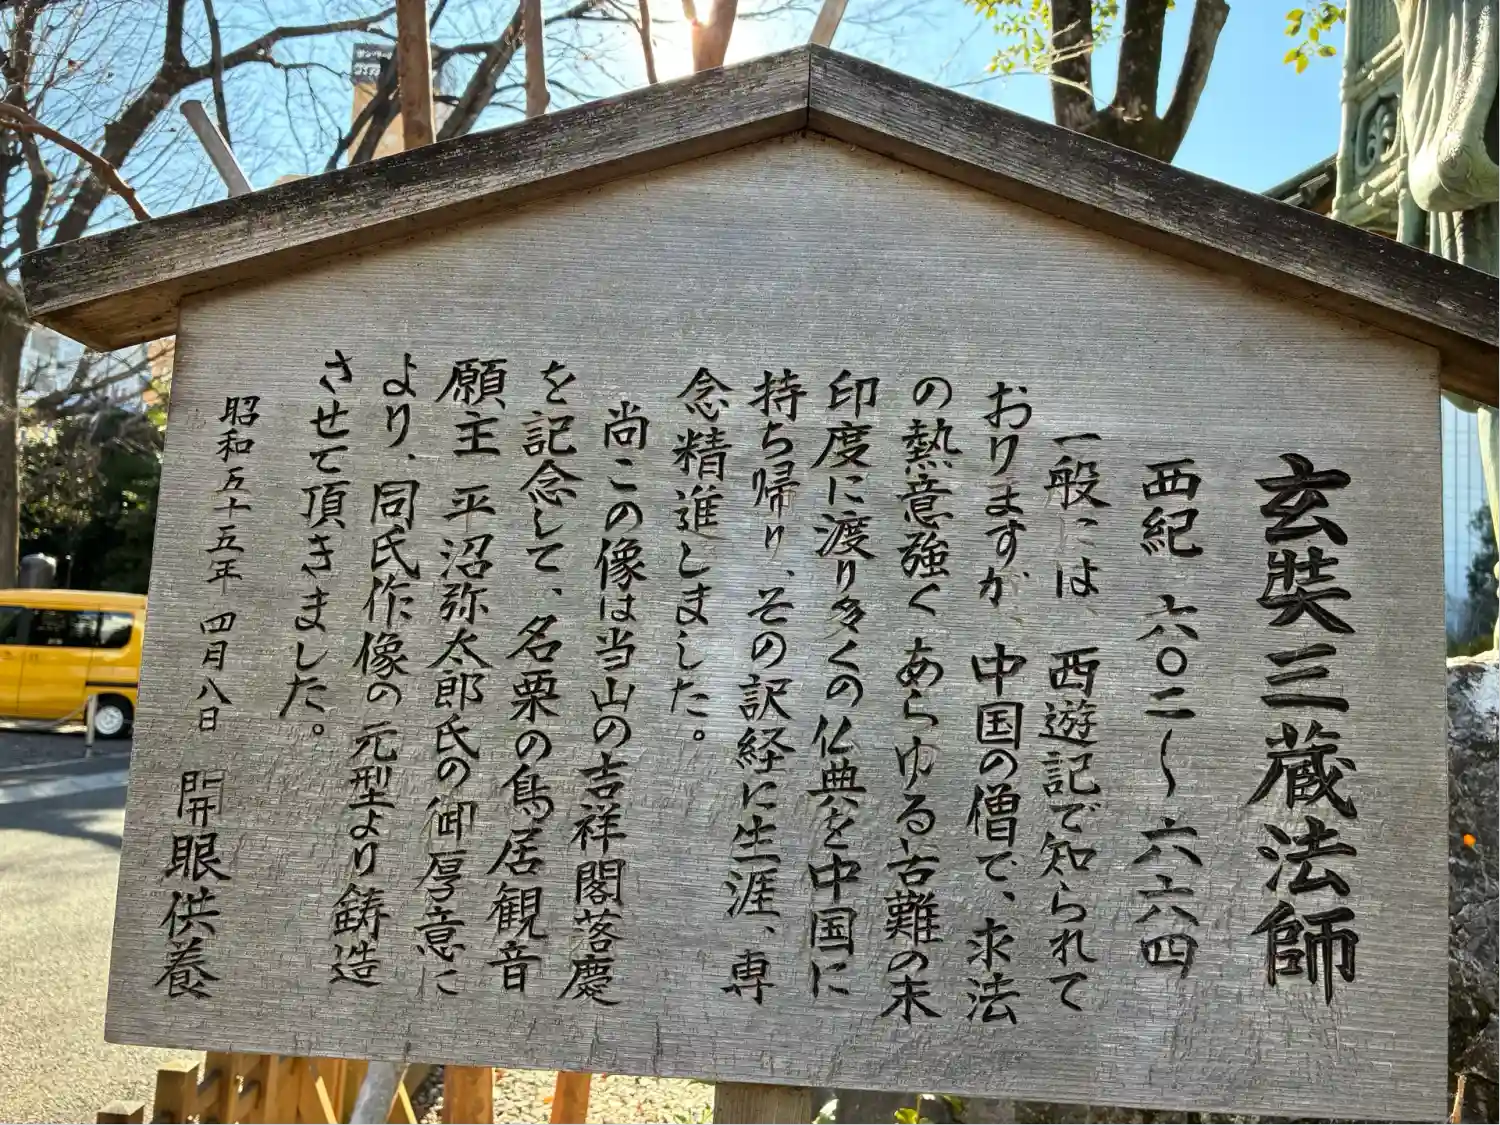 玄奘三蔵法師
西紀 六〇二〜六六四
一般には、西遊記で知られて
おりますが、中国の僧で、求法
の熱意強くあらゆる苦難の末
印度に渡り多くの仏典を中国に
持ち帰り、その訳経に生涯、専
念精進しました。
尚この像は当山の吉祥閣落慶
を記念して、名栗の鳥居観音
願主 平沼弥太郎氏の御厚意に
より、同氏作像の元型より鋳造
させて頂きました。
昭和五十五年 四月八日 開眼供養